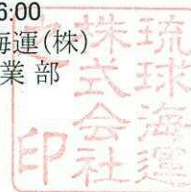 6:00
海運(株)
業 部
琉球海運
株式会社
之印